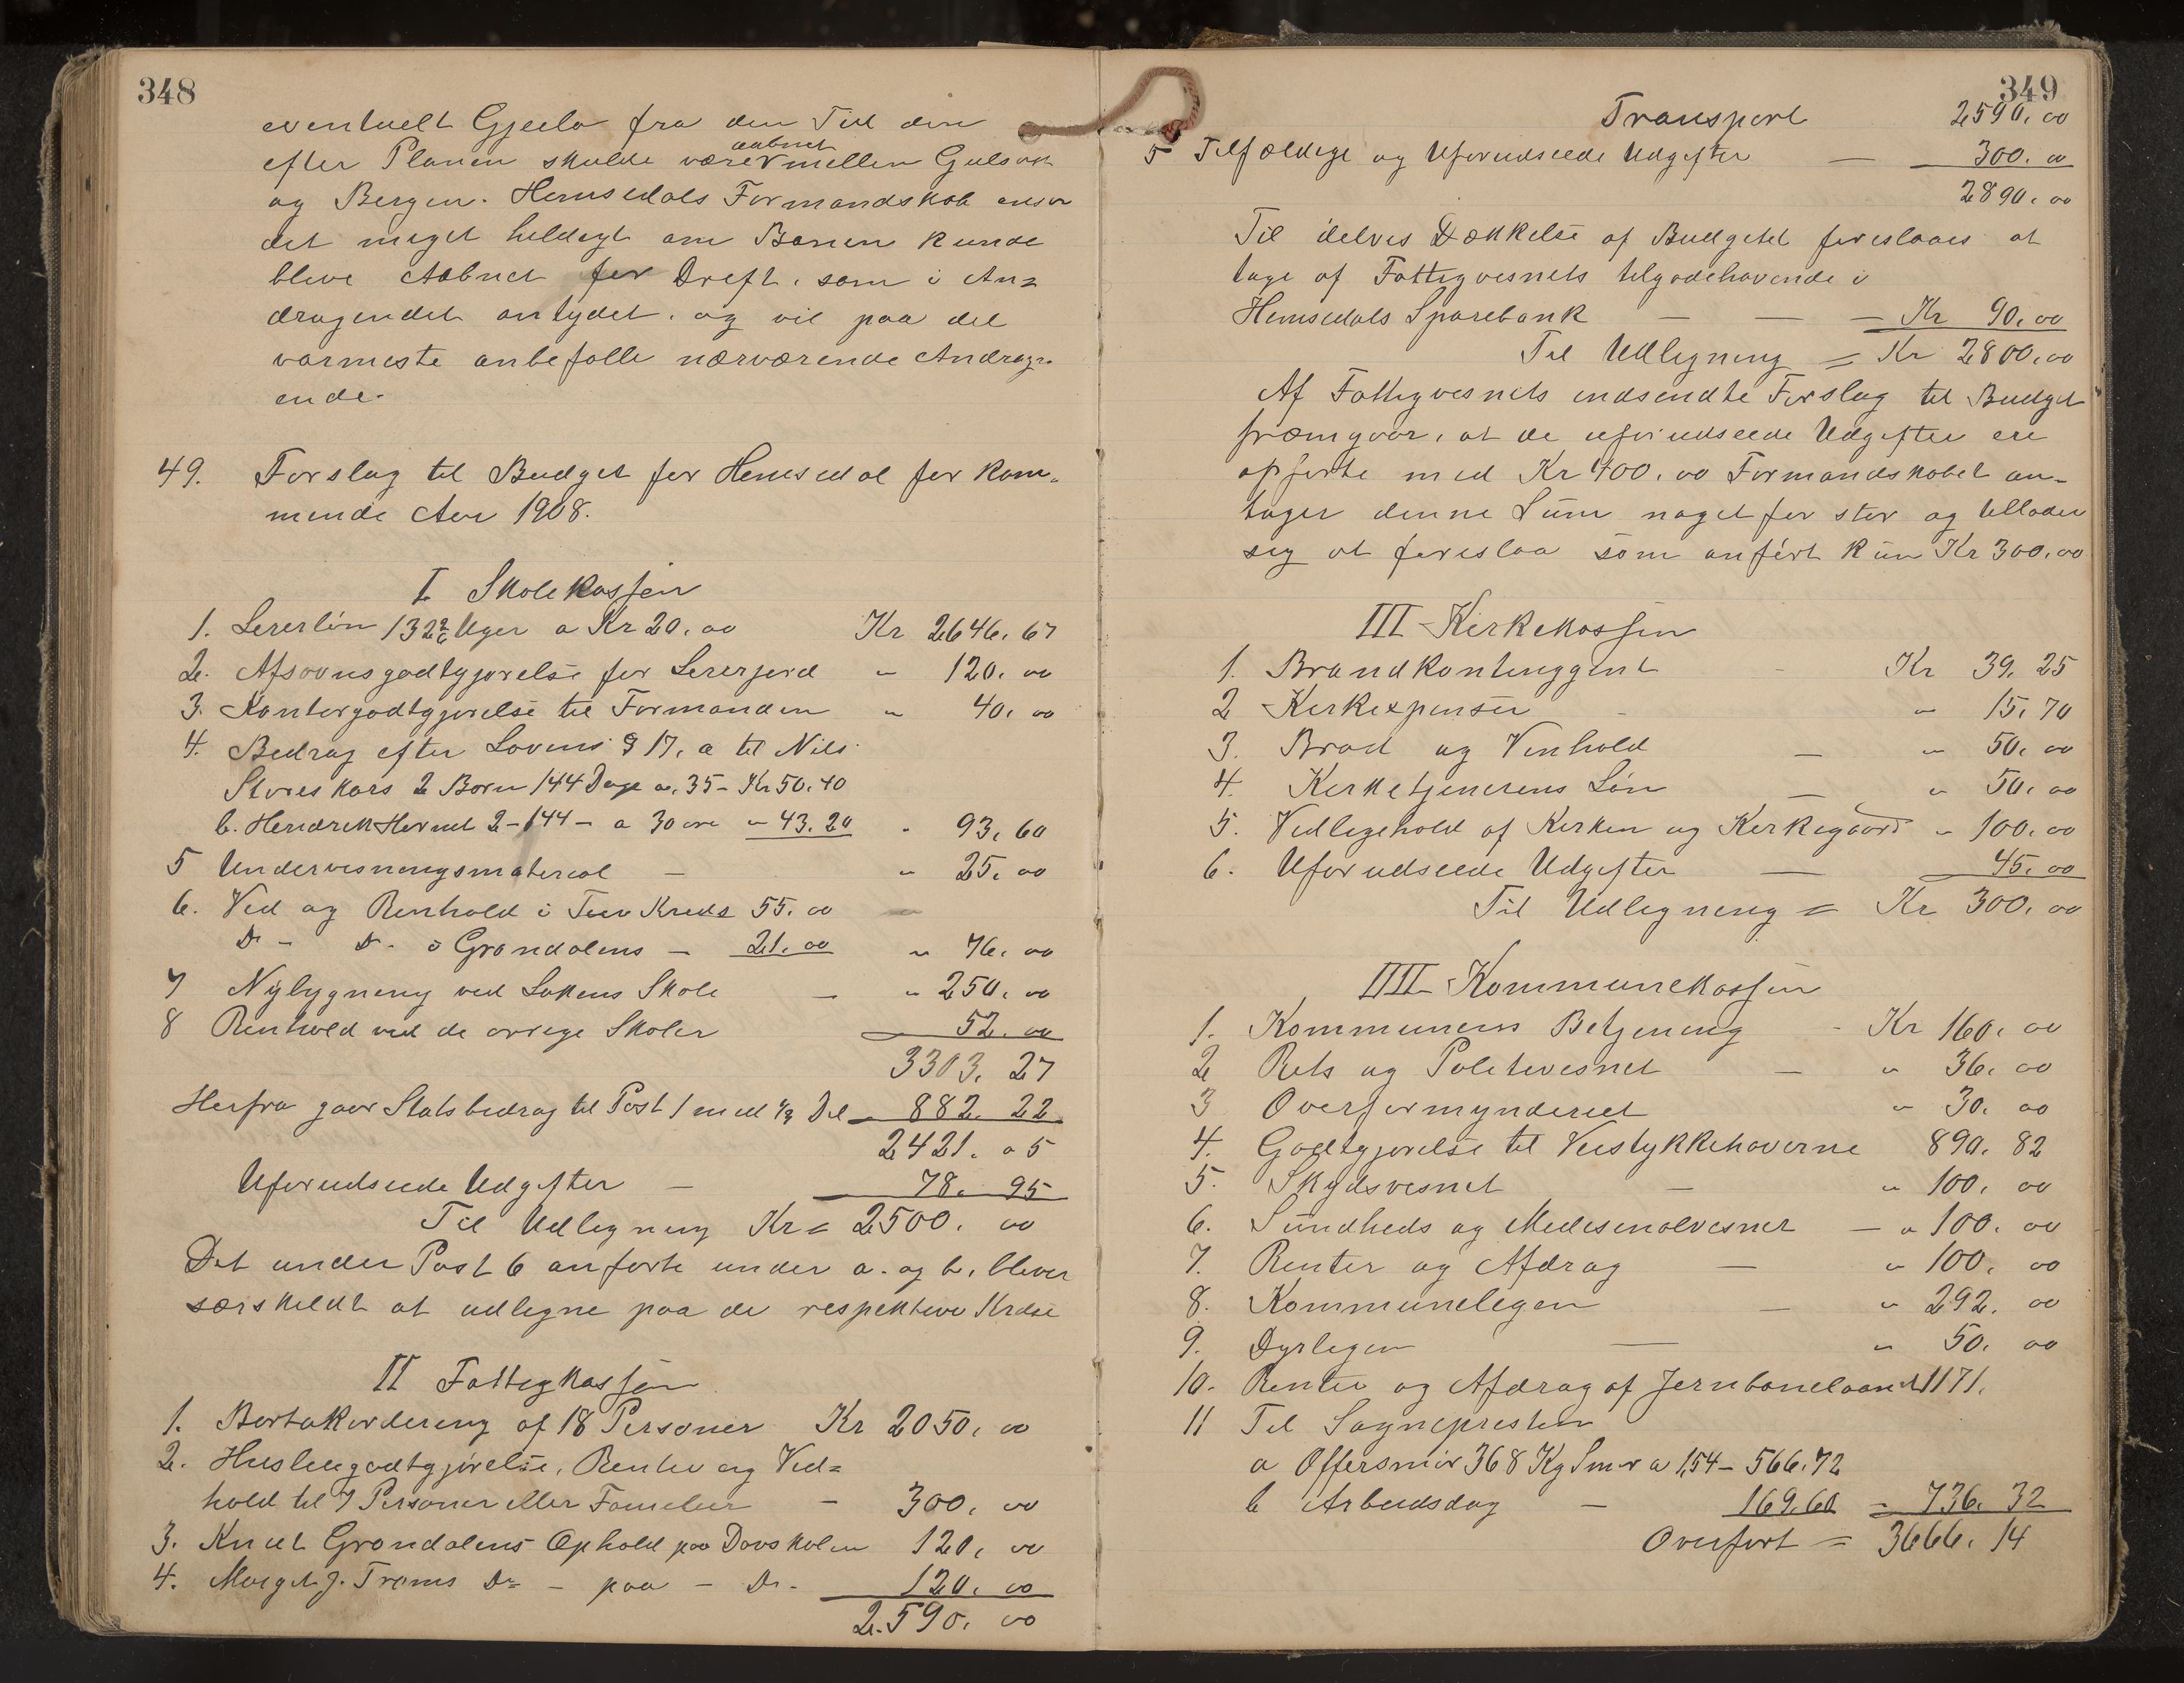 348
eventuelt Gjeilo fra den Tid den
efter Planen skulde være aabnet mellem Gulsvik
og Bergen. Hemsedals Formandskab anser
det meget heldigt om Banen kunde
blive Aabnet for Drift, som i An=
dragendet antydet, og vil paa det
varmeste anbefalle nærværende Andrag=
ende.
49. Forslag til Budget for Hemsedal for kom=
mende Aar 1908.
I Skolekassen
1. Lererløn 132 2/6 Uger a Kr 20.00 Kr 2646.67
2. Afsavnsgodtgjørelse for Lererjord " 120.00
3. Kontorgodtgjørelse til Formanden " 40.00
4. Bedrag efter Lovens § 17, a til Nils
Storeskars 2 Børn 144 Dage a. 35 - Kr 50.40
b. Hendrik Hervet 2 - 144 - a 30 øre " 43.20 " 93.60
5 Undervisningsmaterial — " 25.00
6. Ved og Renhold i Tuv Kreds 55.00
Do - Do - i Grøndalens — 21.00 " 76.00
7 Nybygning ved Løkens Skole — " 250.00
8 Renhold ved de øvrige Skoler 52.00
3303.27
Herfra gaar Statsbedrag til Post 1 med 1/3 Del 882.22
2421.05
Uforudseede Udgifter — 78.95
Til Udligning Kr = 2500.00
Det under Post 6 anførte under a. og b. bliver
særskildt at udligne paa de respektive Kredse
II Fattigkassen
1. Bortakordering af 18 Personer Kr 2050.00
2. Husleiegodtgjørelse, Renter og Ved=
hold til 7 Personer eller Familier — 300.00
3. Knut Grøndalens Ophold paa Døvskolen 120.00
4. Marget J. Trøms Do - paa - Do - 120.00
2590.00
349
Transport 2590.00
5 Tilfældige og Uforudseede Udgifter — 300.00
2890.00
Til delvis Dækkelse af Budgetet foreslaaes at
tage af Fattigvesnets tilgodehavende i
Hemsedals Sparebank — — — Kr 90.00
Til Udligning = Kr 2800.00
Af Fattigvesnets indsendte Forslag til Budget
fræmgaar, at de uforudseede Udgifter ere
opførte med Kr 400.00 Formandskabet an=
tager denne Sum noget for stor og tillader
sig at foreslaa som anført kun Kr 300.00
III Kirkekassen
1. Brandkontinggent - Kr 39.25
2 Kirkexpenser - " 15.70
3. Brød og Vinhold — " 50.00
4. Kirketjenerens Løn — " 50.00
5. Vedligehold af Kirken og Kirkegaard " 100.00
6. Uforudseede Udgifter — 45.00
Til Udligning = Kr 300.00
IIII Kommunekassen
1. Kommunens Betjening - Kr 160.00
2 Rets og Politivesnet — " 36.00
3 Overformynderiet " 30.00
4. Godtgjørelse til Veistykkehaverne 890.82
5. Skydsvesnet — " 100.00
6. Sundheds og Medesinalvesnet — " 100.00
7. Renter og Afdrag — " 100.00
8. Kommunelegen — " 292.00
9. Dyrlegen — " 50.00
10. Renter og Afdrag af Jernbanelaanet 1171.
11 Til Sognepresten
a Offersmør 368 Kg Smør a 1,54 — 566.72
b Arbeidsdag — 169.60 = 736.32
Overført = 3666.14